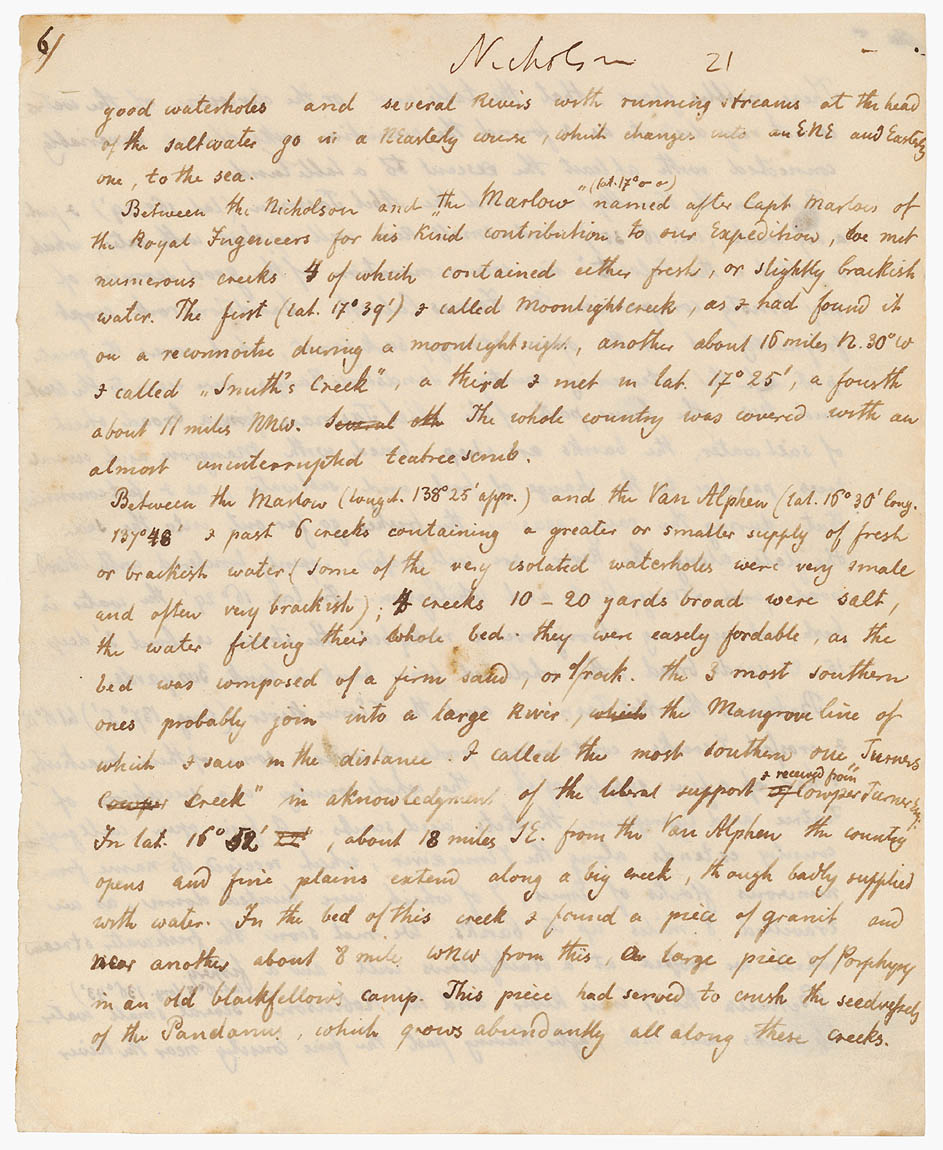 6/
Nicholson 21
good waterholes and several Rivers with running streams at the head
of the saltwater go in a NEasterly course, which changes into an ENE and Easterly
one, to the sea.
(lat. 17° 0 0)
Between the Nicholson and „the Marlow" named after Capt Marlow of
the Royal Ingeneers for his kind contribution to our Expedition, we met
numerous creeks 4 of which contained either fresh, or slightly brackish
water. The first (lat. 17° 39') I called Moonlightcreek, as I had found it
on a reconnoitre during a moonlightnight, another about 16 miles N. 30° W
I called „Smith's Creek", a third I met in lat. 17° 25', a fourth
about 11 miles NNW. Several oth The whole country was covered with an
almost uninterrupted teatree scrub.
Between the Marlow (longit. 138° 25' appr.) and the Van Alphen (lat. 16° 30' long.
137° 48' I past 6 creeks containing a greater or smaller supply of fresh
or brackish water (some of the very isolated waterholes were very smale
and often very brackish); 4 creeks 10 – 20 yards broad were salt,
the water filling their whole bed. they were easely fordable, as the
bed was composed of a firm sand, or of rock. the 3 most southern
ones probably join into a large River, which the Mangrove line of
which I saw in the distance. I called the most southern one „Turners
I received from
Cowper Creek" in aknowledgment of the liberal support of Cowper Turner Esq.
In lat. 16° 52', about 18 miles SE. from the Van Alphen the country
opens and fine plains extend along a big creek, though badly supplied
with water. In the bed of this creek I found a piece of granit and
near another about 8 mile WNW from this, a large piece of Porphyry
in an old blackfellow's camp. This piece had served to crush the seedvessels
of the Pandanus, which grows abundantly all along these creeks.